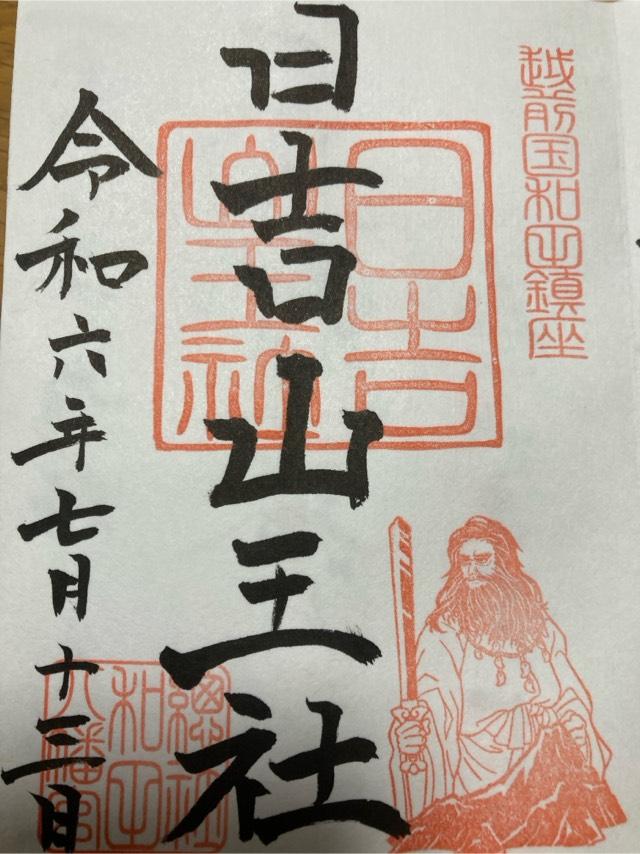 越前国和田鎮座
日吉山王社
日吉山王社
令和六年七月十三日
總社
和田
八幡宮